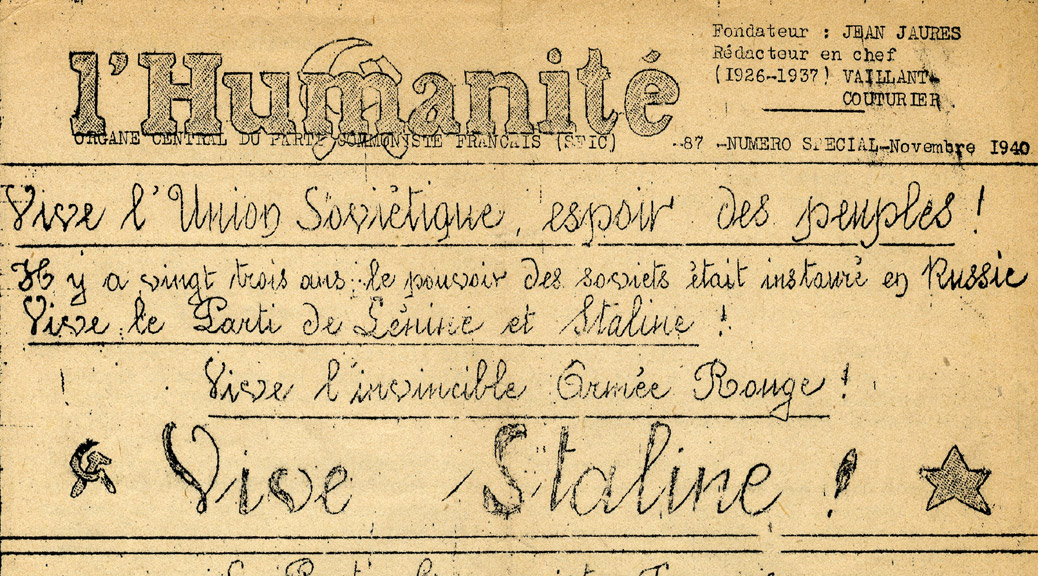 l'Humanité
ORGANE CENTRAL DU PARTI COMMUNISTE FRANCAIS (SFIC)
Fondateur : JEAN JAURES
Rédacteur en chef
(1926-1937) VAILLANT-
COUTURIER
-87 -NUMERO SPECIAL-Novembre 1940
Vive l'Union Soviétique, espoir des peuples !
Il y a vingt trois ans, le pouvoir des soviets était instauré en Russie
Vive le Parti de Lénine et Staline !
Vive l'invincible Armée Rouge !
Vive Staline !